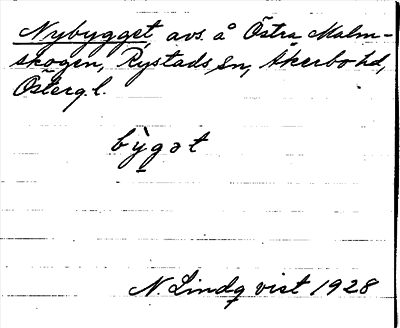 Nybygget, avs. å Östra Malm-
skogen, Rystads sn, Åkerbo hd,
Österg. l.
bỳgət
N. Lindqvist 1928